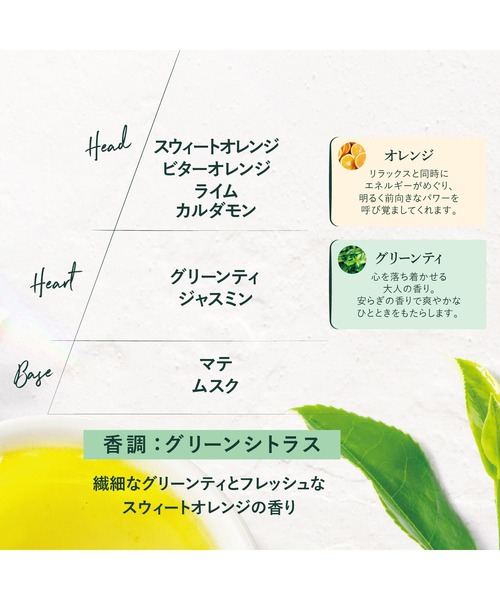 Head
スウィートオレンジ
ビターオレンジ
ライム
カルダモン
オレンジ
リラックスと同時に
エネルギーがめぐり、
明るく前向きなパワーを
呼び覚ましてくれます。
Heart
グリーンティ
ジャスミン
グリーンティ
心を落ち着かせる
大人の香り。
安らぎの香りで爽やかな
ひとときをもたらします。
Base
マテ
ムスク
香調：グリーンシトラス
繊細なグリーンティとフレッシュな
スウィートオレンジの香り